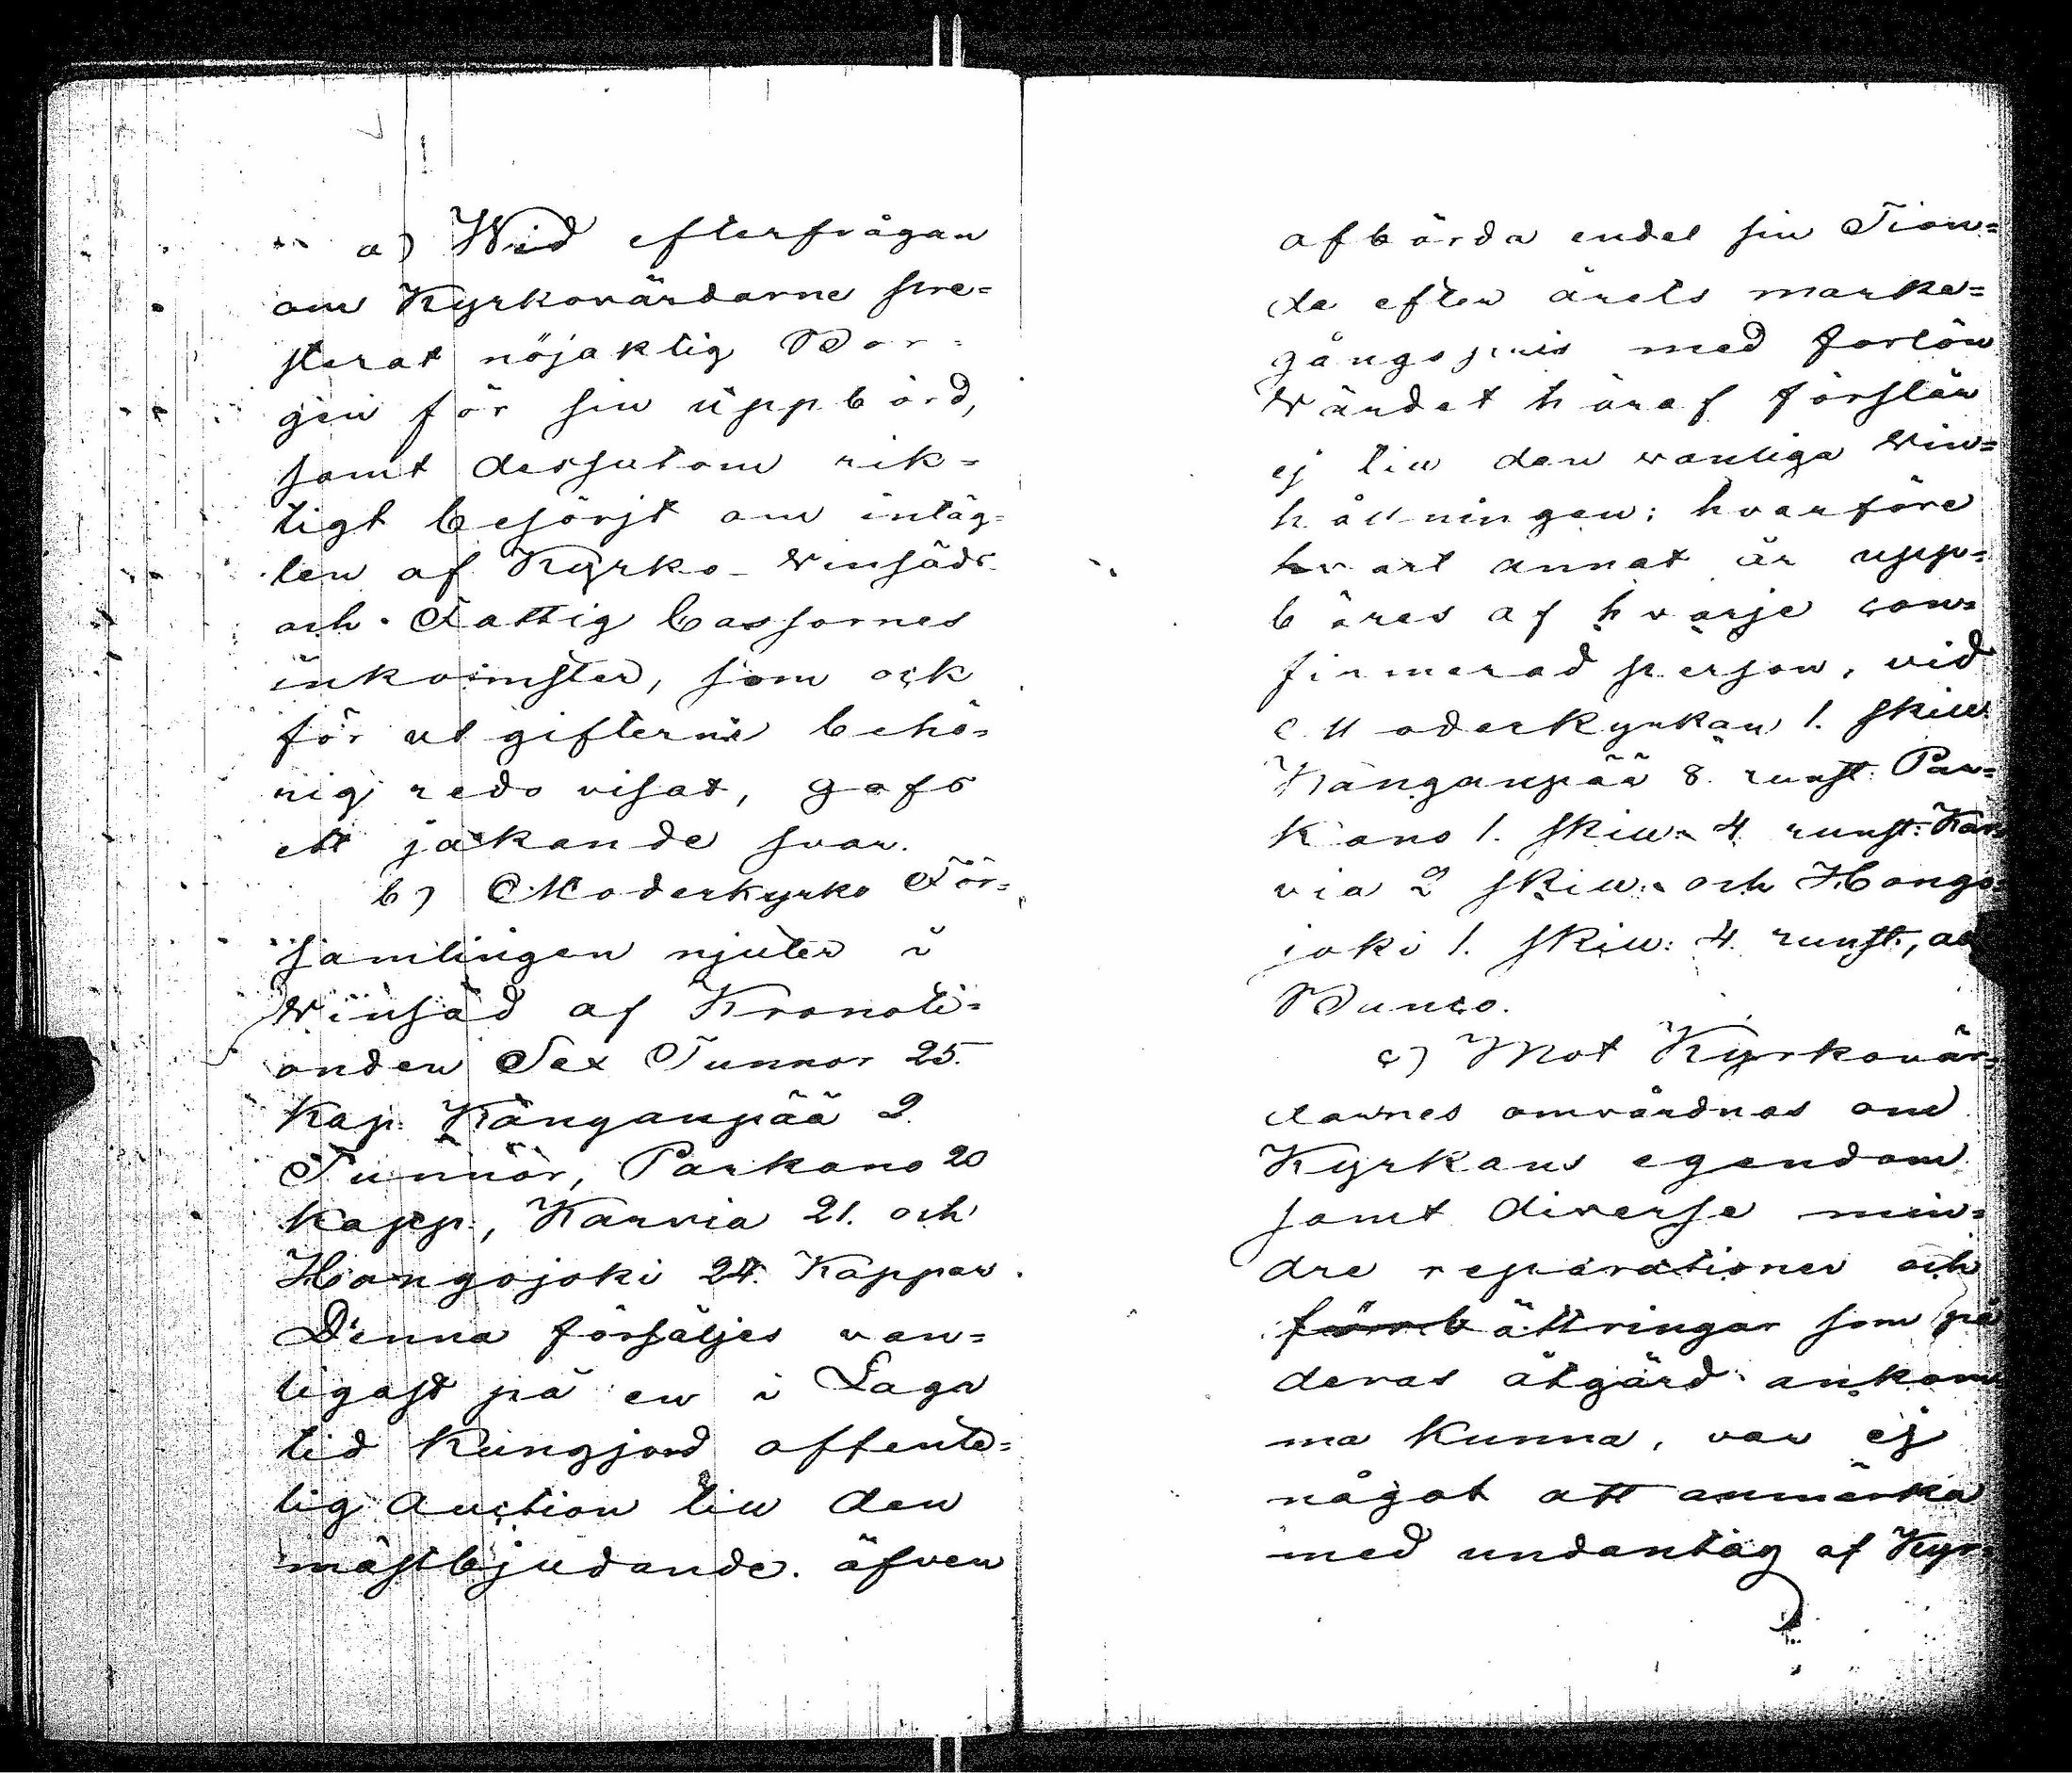 a) Wid efterfrågan
om Kyrkovärdarne pre=
sterat nöjaktig Bor=
gen för sin uppbörd,
samt dessutom rik=
tigt besörjt om intäg=
ten af Kyrko- Winsäds
och Fattig Cassornes
inkomster, som ock
för utgifterne behö=
rig redovisat, gafs
ett jakande svar.
b) Moderkyrko För=
samlingen njuter i
Winsäd af Kronoti=
onden Sex Tunnor 25.
Kap. Kånganpää 2.
Tunnor, Parkano 20
Kapp., Karvia 21. och
Hongojoki 24. Kappar.
Denna försäljes van=
ligast på en i Laga
tid Kungjord offente=
lig Auction till den
mästbjudande. äfven
afbörda endel sin Tion=
de efter årets marke=
gångspris med forlön
Wändet häraf förslår
ej till den vanliga Win=
hållningen; hvarföre
hvart annat år upp=
bäres af hvarje con=
firmerad person, vid
Moderkyrkan 1. skill:
Kånganpää 8. runst: Par=
kano 1. skill: 4. runst: Kar=
via 2 skill: och Hongo=
joki 1. skill: 4. runst.,
Banco.
c) Mot Kyrkovär=
darnes omvårdnad om
Kyrkans egendom
samt diverse min=
dre reparationer och
förbättringar som på
deras åtgärd ankom
ma kunna, var ej
något att anmärka
med undantag af Kyr=